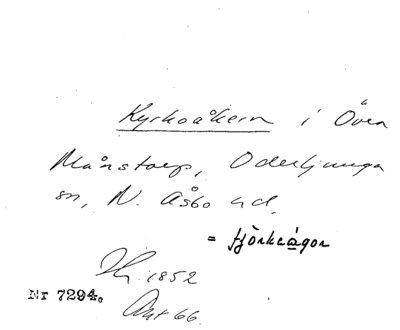 Kyrkoåkern i Övra
Månstorp, Oderljunga
sn, N. Åsbo hd.
= fjörkeågor
1852
Nr 7294.
Akt 66.